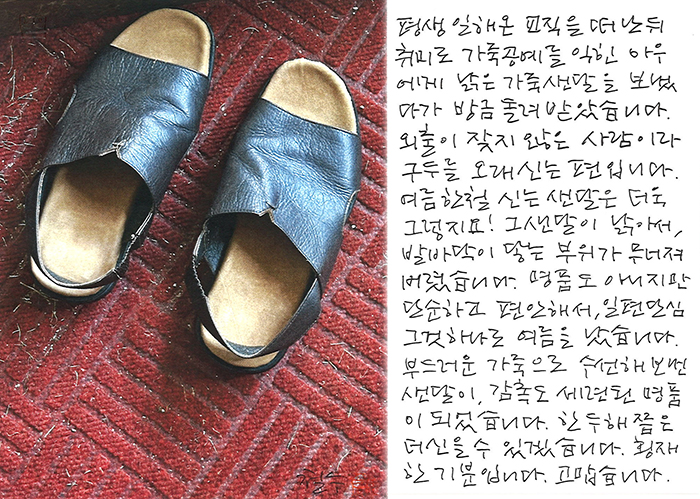 평생 일해온 교직을 떠난뒤
취미로 가죽공예를 익힌 아우
에게 낡은 가죽샌달을 보냈
다가 방금 돌려받았습니다.
외출이 잦지 않은 사람이라
구두를 오래신는 편입니다.
여름한철 신는 샌달은 더욱
그렇지요! 그샌달이 낡아서,
발바닥이 닿는 부위가 무너져
버렸습니다. 명품도 아니지만
단순하고 편안해서, 일편단심
그것하나로 여름을 났습니다.
부드러운 가죽으로 수선해보낸
샌달이, 감촉도 세련된 명품
이 되었습니다. 한두해 쯤은
더신을수 있겠습니다. 횡재
한 기분입니다. 고맙습니다.